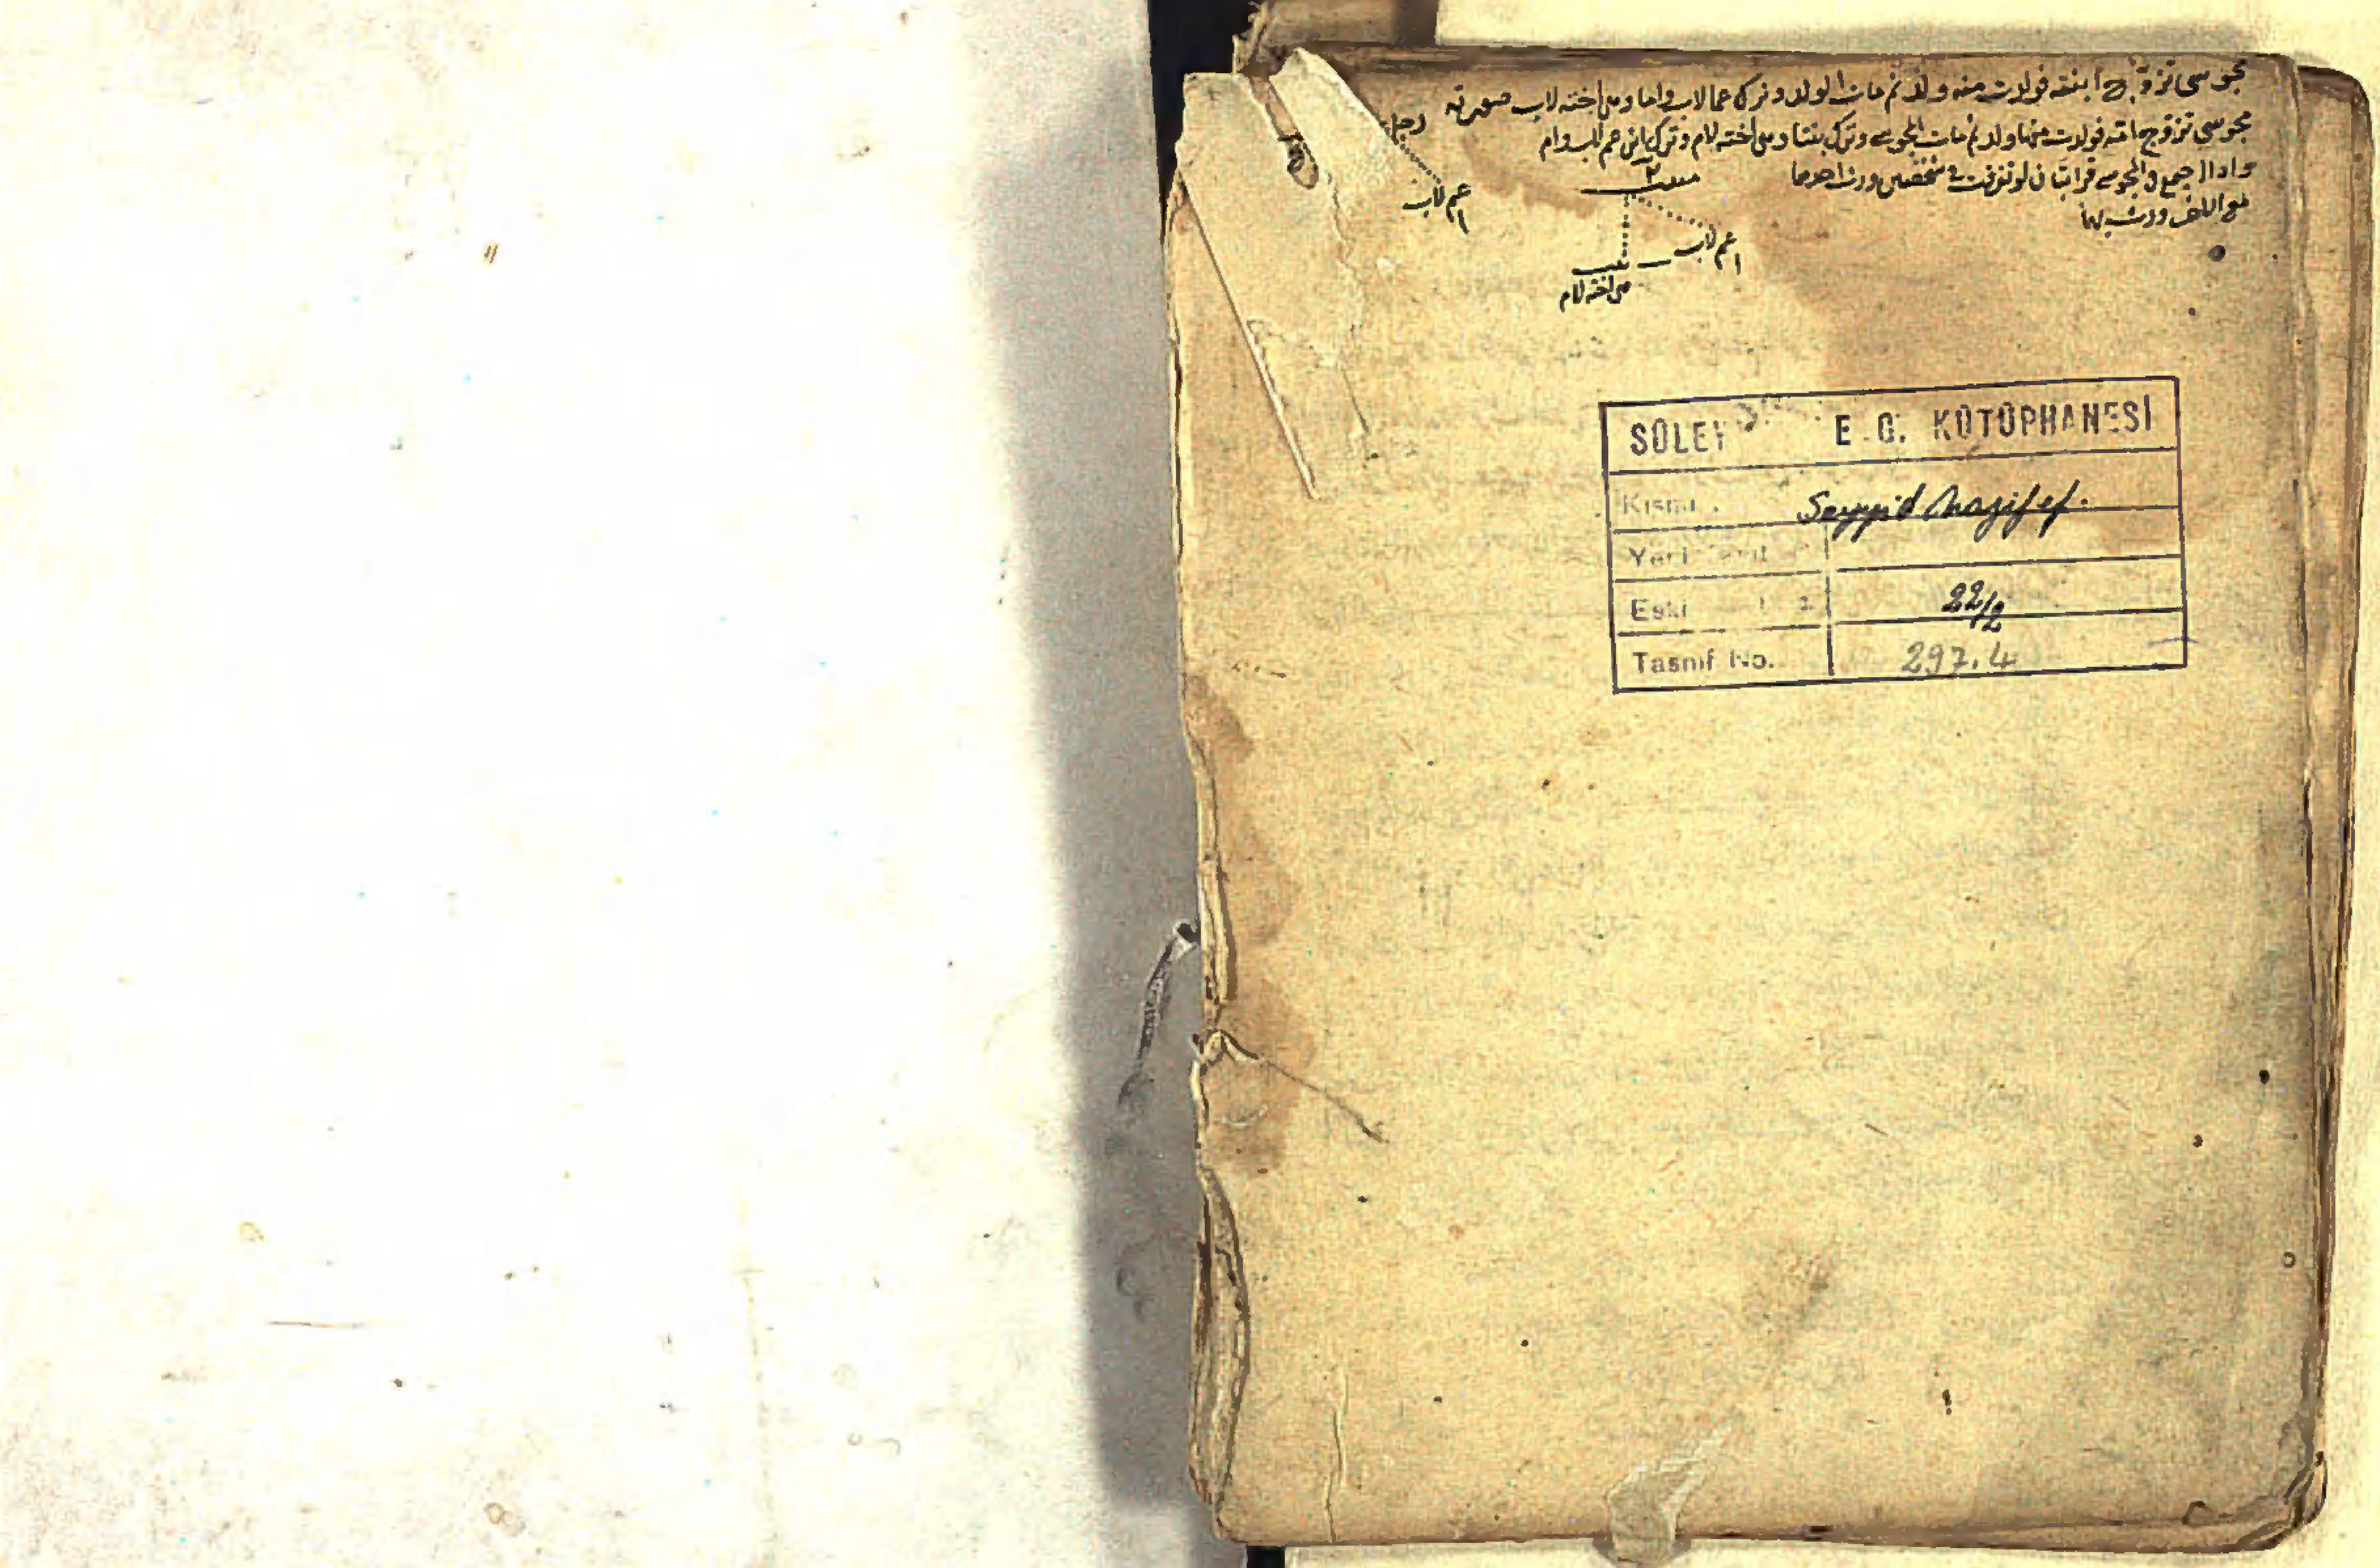 مجوسى تزوج ابنته فولدت منه ولد ثم مات الولد وترك عما لاب واما وهى اخته لاب صورته
مجوسى تزوج امه فولدت منها ولد ثم مات المجوسى وترك بنتا وهى اخته لام وترك ابن عم لاب وام
واذا اجتمع فى المجوسى قرابتان لو تفرقت فى شخصين ورث احدهما
مع الاخر ورث بهما
رجل
عم لاب
ا
ميت ٢
عم لاب
ا
بنت
هى اخته لام
SÜLEY E G. KÜTÜPHANESİ
Kısmı Seyyid Nazif ef.
Yeni
Eski 22/2
Tasnif No. 297.4